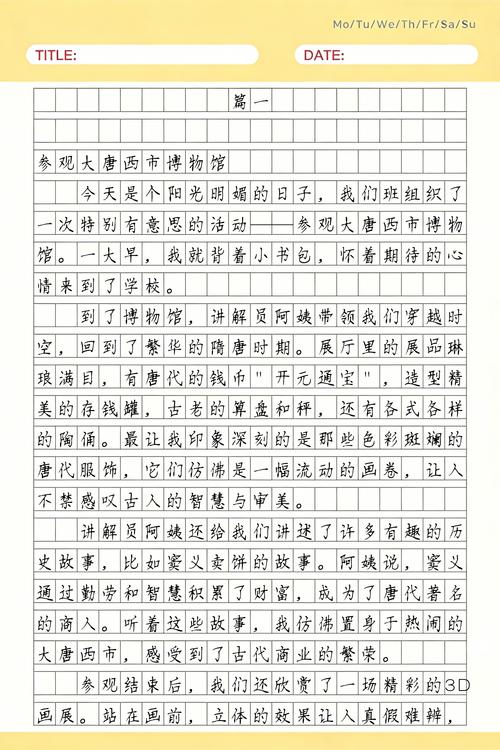 Mo/Tu/We/Th/Fr/Sa/Su
TITLE: DATE:
篇一
参观大唐西市博物馆
今天是个阳光明媚的日子，我们班组织了
一次特别有意思的活动——参观大唐西市博物
馆。一大早，我就背着小书包，怀着期待的心
情来到了学校。
到了博物馆，讲解员阿姨带领我们穿越时
空，回到了繁华的隋唐时期。展厅里的展品琳
琅满目，有唐代的钱币"开元通宝"，造型精
美的存钱罐，古老的算盘和秤，还有各式各样
的陶俑。最让我印象深刻的是那些色彩斑斓的
唐代服饰，它们仿佛是一幅流动的画卷，让人
不禁感叹古人的智慧与审美。
讲解员阿姨还给我们讲述了许多有趣的历
史故事，比如窦义卖饼的故事。阿姨说，窦义
通过勤劳和智慧积累了财富，成为了唐代著名
的商人。听着这些故事，我仿佛置身于热闹的
大唐西市，感受到了古代商业的繁荣。
参观结束后，我们还欣赏了一场精彩的3D
画展。站在画前，立体的效果让人真假难辨，